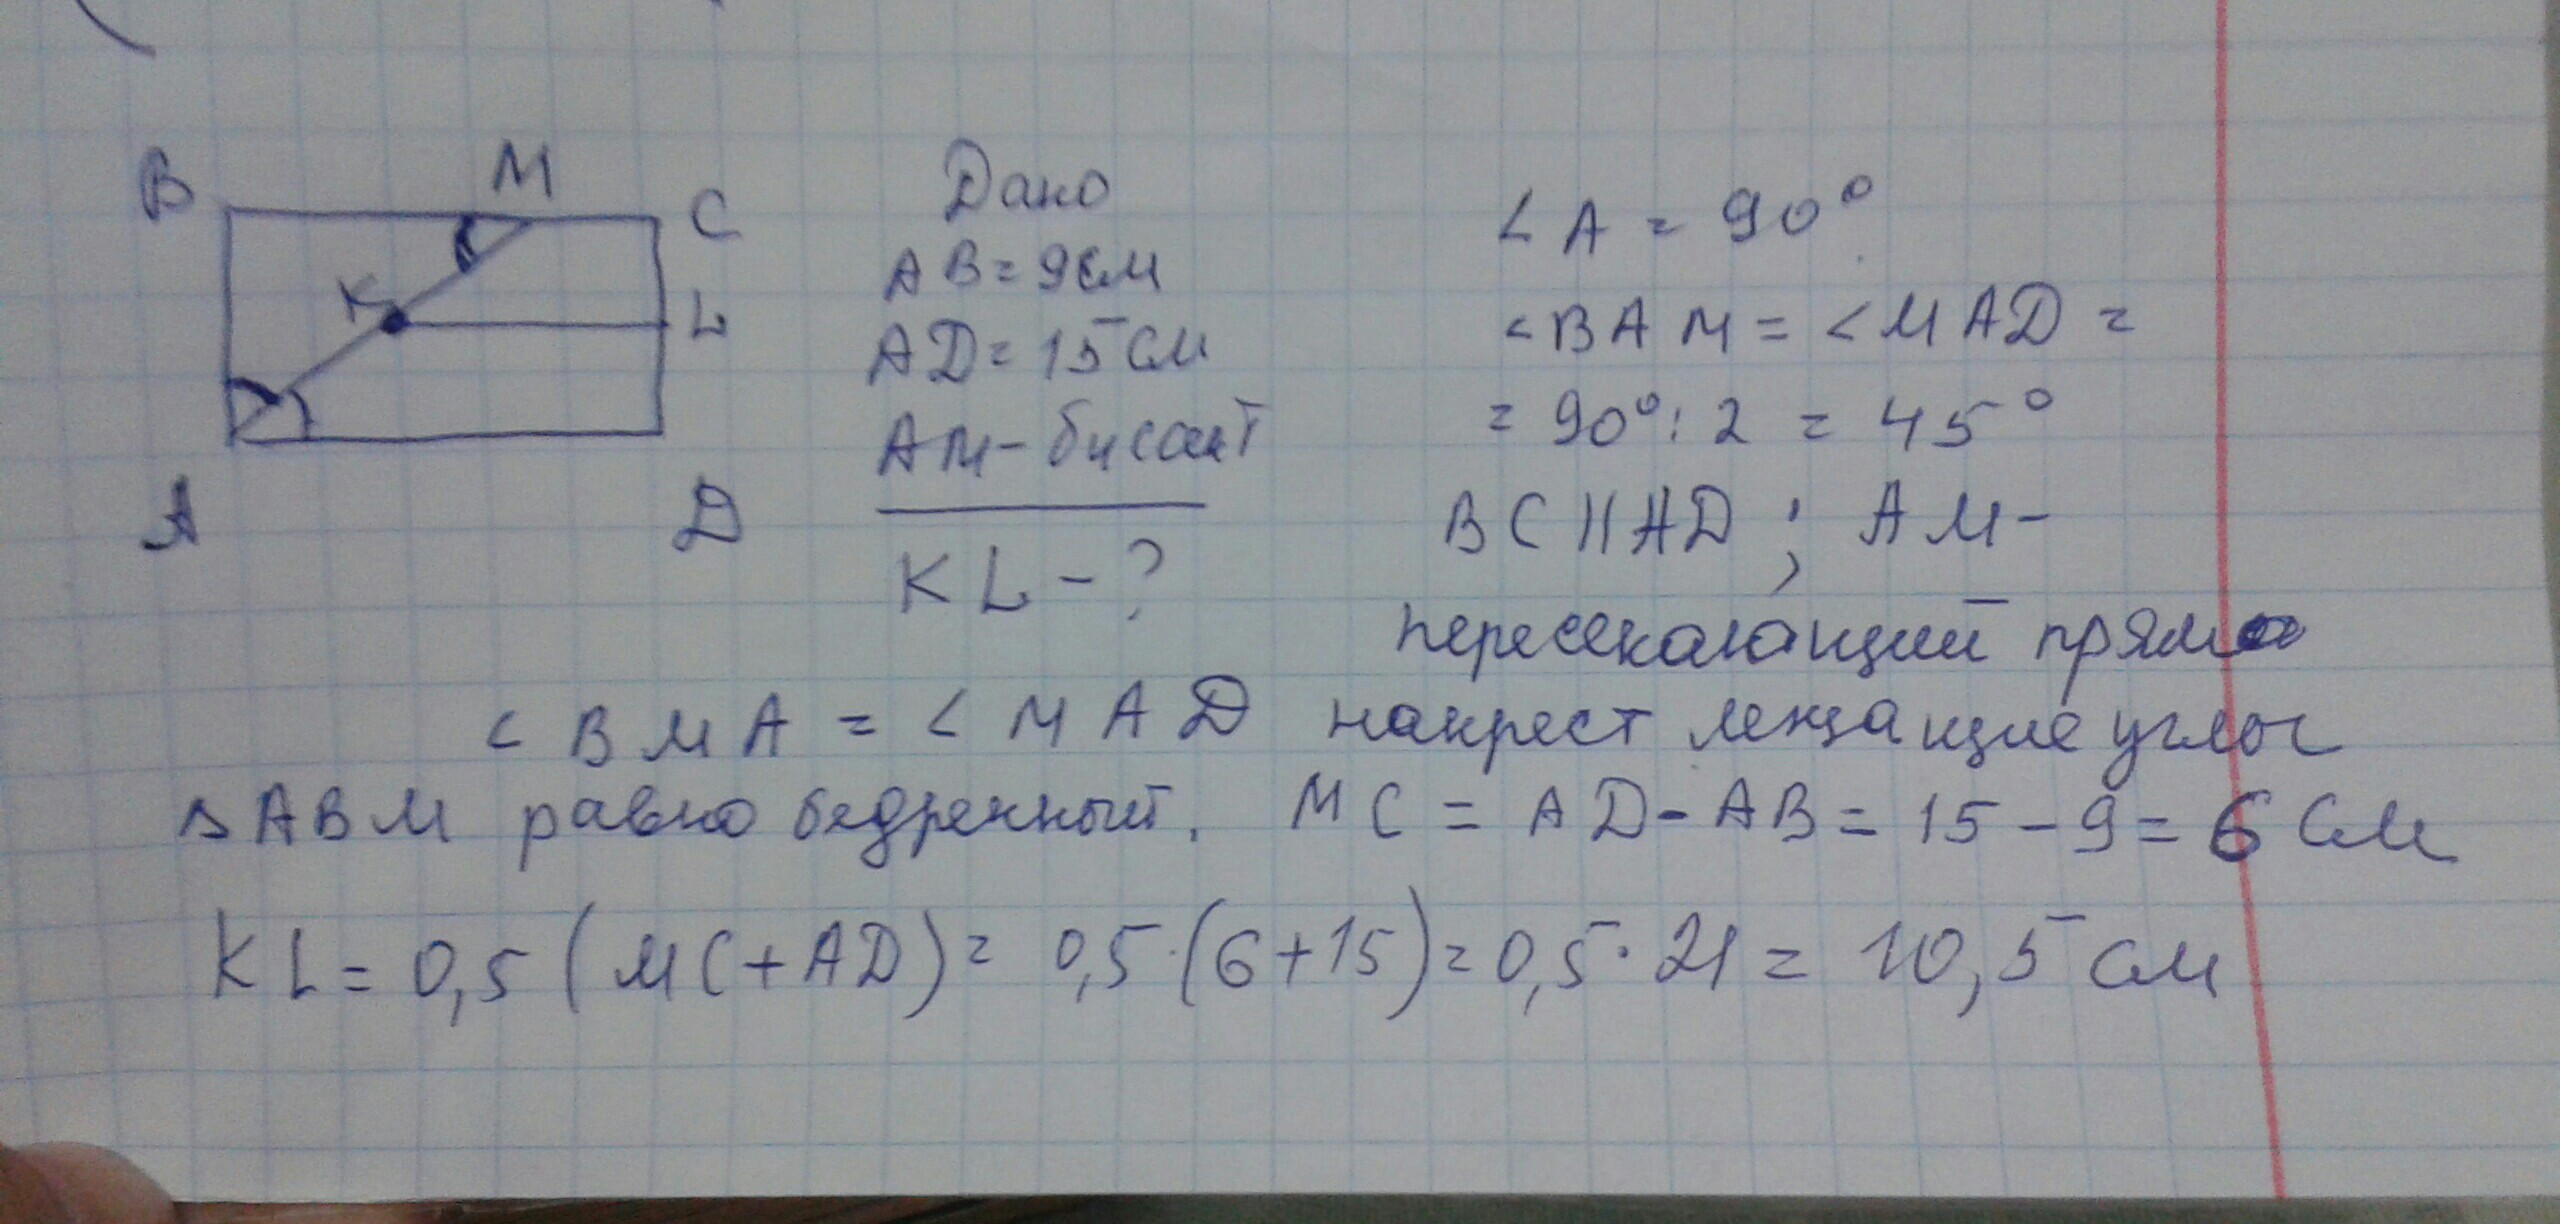 B M C
K L
A D
Дано
AB = 9 см
AD = 15 см
AM - бисект
KL - ?
∠A = 90°
∠BAM = ∠MAD =
= 90° : 2 = 45°
BC || AD ; AM -
пересекающий прямая
∠BMA = ∠MAD накрест лежащие углы
△ABM равнобедренный. MC = AD - AB = 15 - 9 = 6 см
KL = 0,5 (MC + AD) = 0,5 · (6 + 15) = 0,5 · 21 = 10,5 см